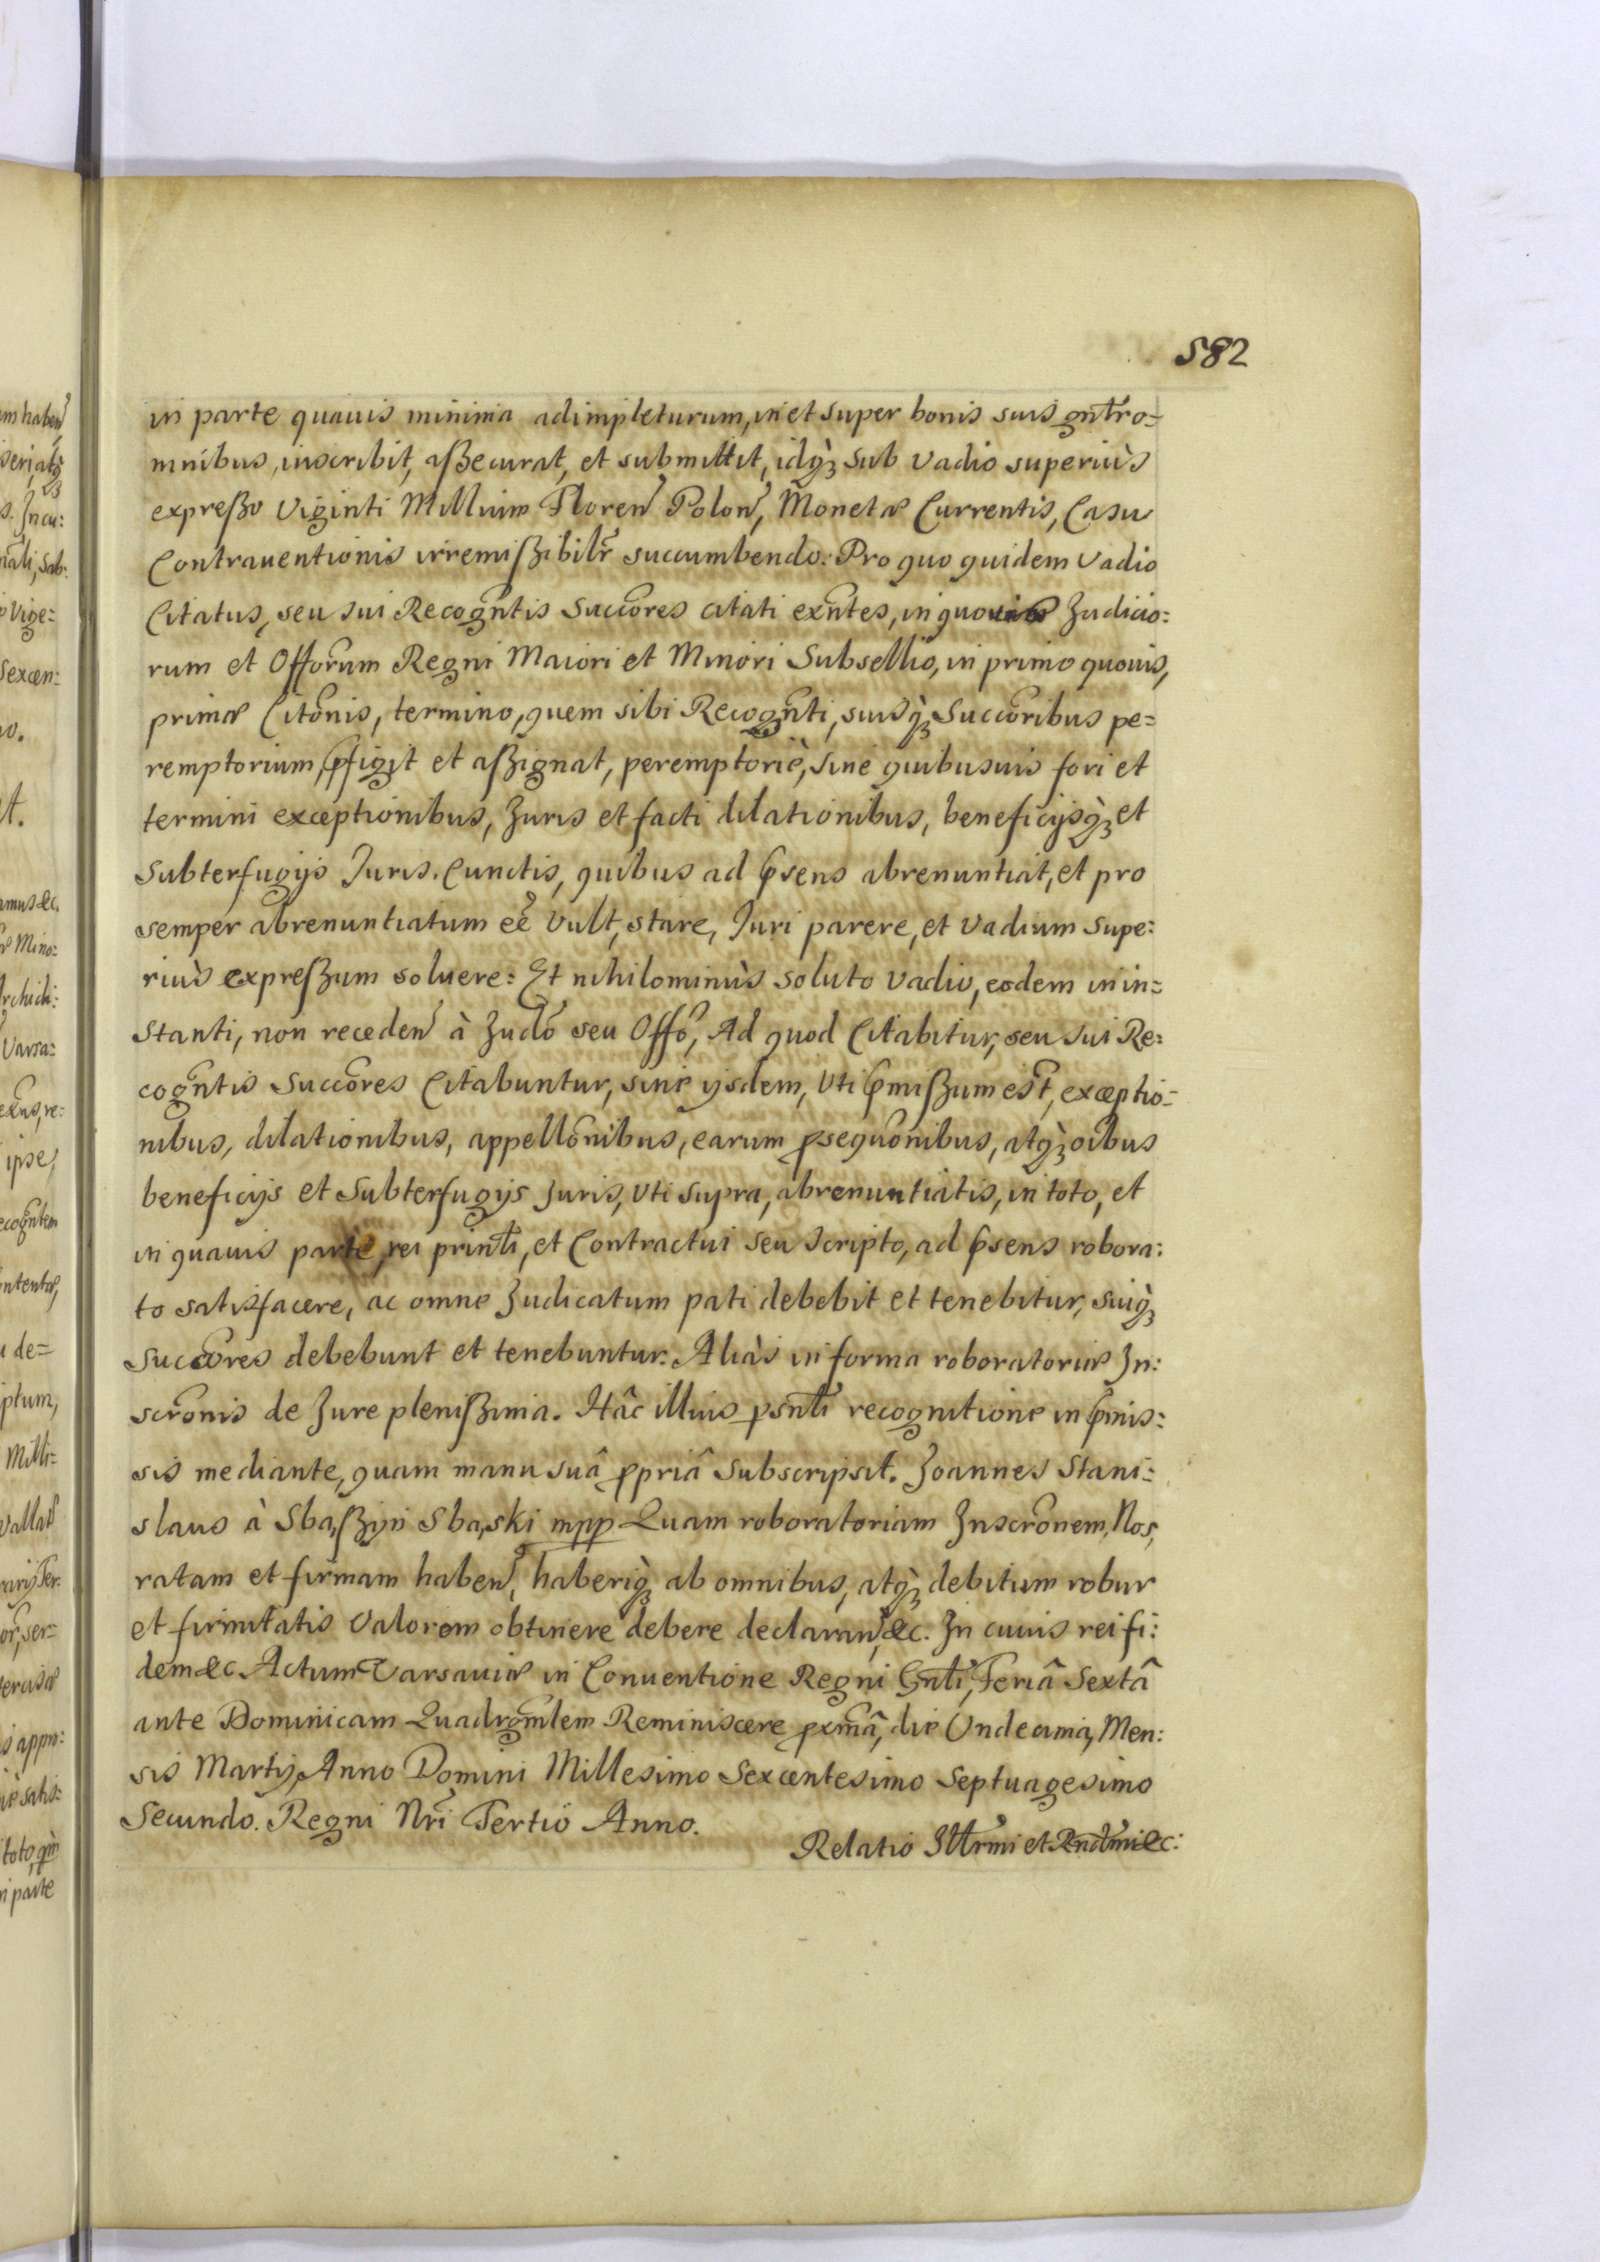 582
in parte quauis minima adimpleturum, in et super bonis suis gnlr o-
mnibus, inscribit, aßecurat, et submittit, idq́ꝫ sub vadio superiùs
expreßo Viginti Millium Floren̄ Polon̄, Monetæ Currentis, Casu
Contrauentionis irremißibilr̄ succumbendo: Pro quo quidem vadio
Citatus, seu sui Recogn̄tis Succōres citati exn̄tes, in quouis Judicio:
rum et Offōrum Regni Maiori et Minori Subsellio, in primo quouis,
primæ Citōnis, termino, quem sibi Recogn̄ti, suisq́ꝫ Succōribus pe=
remptorium, p̄figit et aßignat, peremptoriè, sine quibusuis fori et
termini exceptionibus, Juris et facti dilationibus, beneficijsq́ꝫ et
Subterfugijs Juris. Cunctis, quibus ad p̄sens abrenuntiat, et pro
semper abrenuntiatum eē vult, stare, Juri parere, et vadium supe:
riùs expreßum soluere: Et nihilominùs soluto vadio, eodem in in=
stanti, non receden̄ à Judō seu Offō, Ad quod Citabitur, seu sui Re:
cogn̄tis Succōres Citabuntur, sine ijsdem, Uti p̄mißum est, exceptio=
nibus, dilationibus, appellōnibus, earum ꝓsequōnibus, atq́ꝫ oībus
beneficijs et Subterfugijs Juris, Uti supra, abrenuntiatis, in toto, et
in quauis parte, rei prinl̄i, et Contractui seu scripto, ad p̄sens robora:
to satisfacere, ac omne Judicatum pati debebit et tenebitur, suiq́ꝫ
Succōres debebunt et tenebuntur: Aliàs in forma roboratoriæ In:
scrōnis de Jure plenißima. Hâc illius ꝑsnl̄i recognitione in p̄mis:
sis mediante, quam manu suâ ꝓpriâ subscripsit. Joannes Stani:
slaus à Sbąßyn Sbąski mpp Quam roboratoriam Inscrōnem, Nos,
ratam et firmam haben̄, haberiq́ꝫ ab omnibus, atq́ꝫ debitum robur
et firmitatis valorem obtinere debere declaram̄, &c. In cuius rei fi:
dem &c. Actum Varsauiæ in Conuentione Regni Gnl̄i, Feriâ Sextâ
ante Dominicam Quadrgm̄lem Reminiscere ꝓxm̄â, die Undecima, Men:
sis Martij, Anno Domini Millesimo Sexcentesimo Septuagesimo
Secundo. Regni Nrī Tertiò Anno.
Relatio Illr̄mi et Rndm̄i &c: